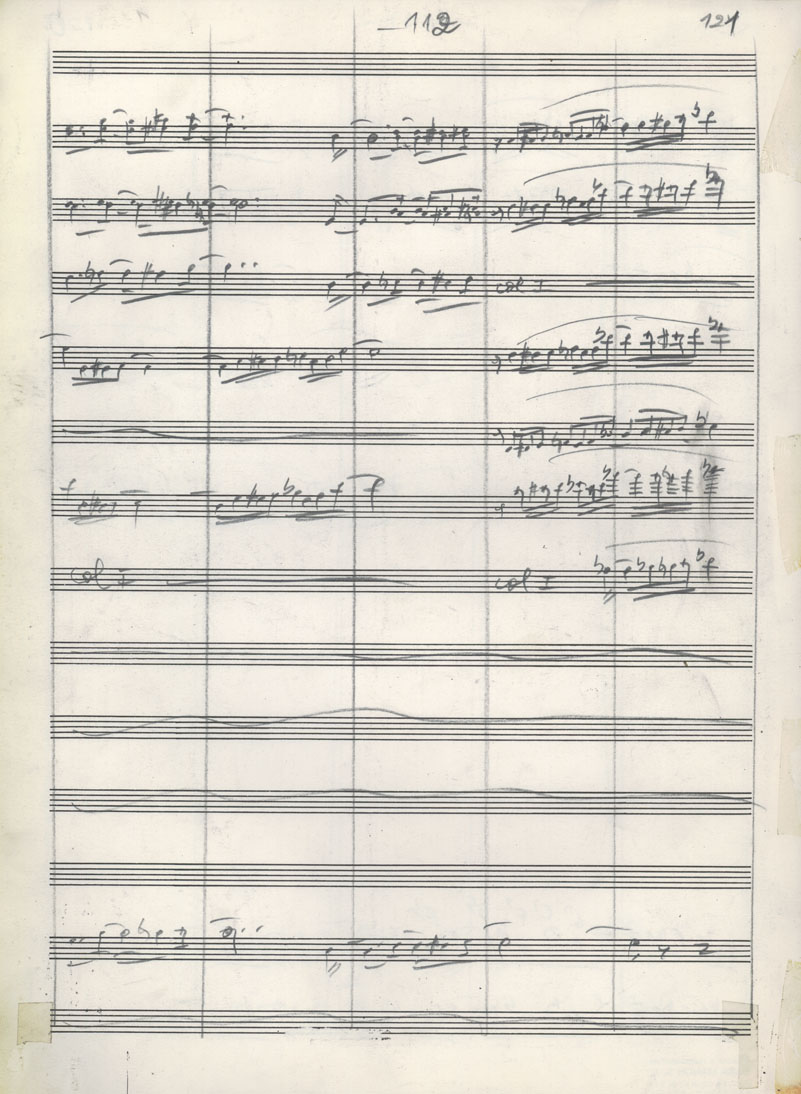 112 121
col I
col I col I